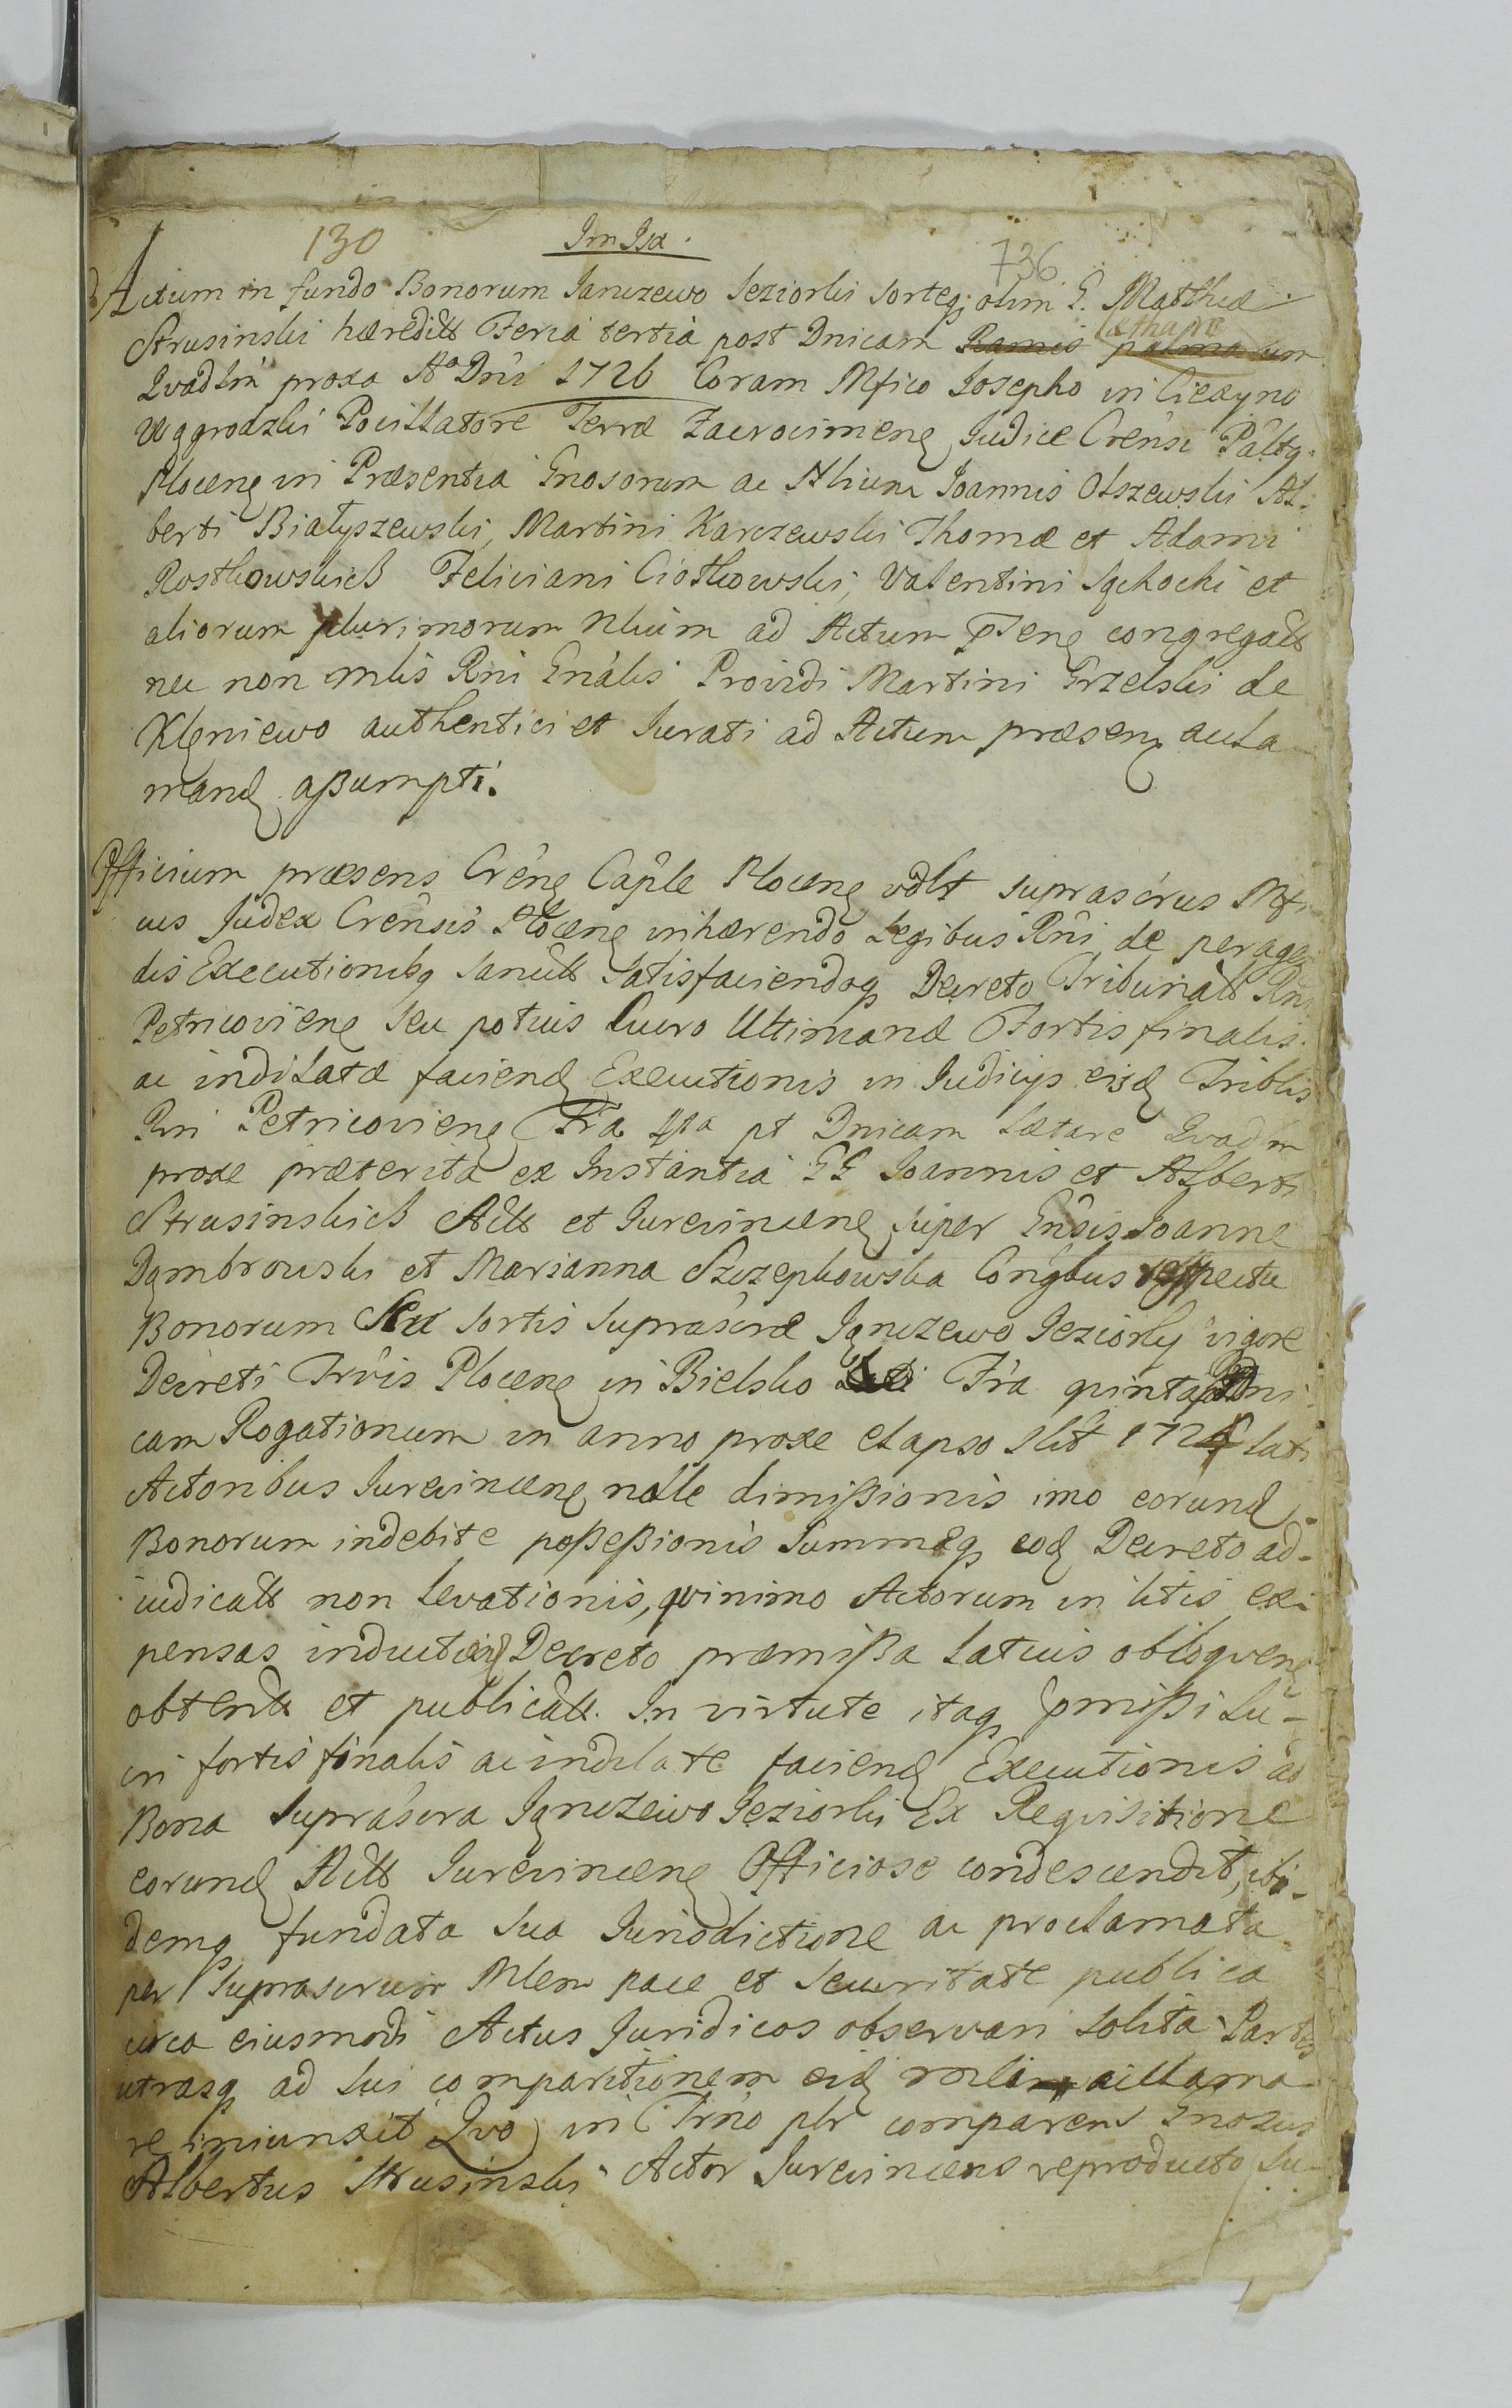 130 Im Isa. 736
Actum in fundo Bonorum Janczewo Jeziorki sorteq; olim G. Matthiæ
Strusinski hæreditt Feria tertia post Dnicam Ramis palmarum Lætare
Qvadlm proxa Ao Dni 1726 Coram Mfico Josepho in Ciexyno
Wggrodzki Pocillatore Terræ Zacrocimens Judice Crensi Paltq
Plocens in Præsentia Gnosorum ac Nlium Joannis Olszewski Al-
berti Białyszewski, Martini Karczewski Thomæ et Adami
Rostkowskich Feliciani Ciotkowski, Valentini Sękocki et
aliorum plurimorum Nlium ad Actum pñens congregatt
nec non Mlis Rni Gnalis Providi Martini Grzelski de
Kleniewo authentici et Jurati ad Actum præsens acla
mand assumpti.
Officium præsens Crens Caple Plocens vdlt suprascrus Mfi
cus Judex Crensis Plocens inhærendo Legibus Rni de peragen
dis Executionibq sancitt Satisfaciendoq Decreto Tribunatt Rni
Petricoviens seu potius Lucro Ultimanæ Fortis finalis
ac indilatæ faciend Executionis in Judicijs eisd Triblis
Rni Petricoviens Fra 4ta pt Dnicam Lætare Qvadlm
proxe præterita ex Instantia GG Joannis et Alberti
Strusinskich Actt et Jurevincens super Gnosis Joanne
Dąmbrowski et Marianna Szczepkowska Congbus respectu
Bonorum seu sortis suprascræ Jąnczewo Jeziorky vigore
Decreti Trris Plocens in Bielsko Fra qvinta pt Dni
cam Rogationum in anno proxe elapso slt 1725 lati
Actoribus Jurevincens nolle dimissionis imo eorund
Bonorum indebite possessionis Summæq eod Decreto ad-
iudicatt non levationis, qvinimo Actorum in litis ex-
pensas inductio Decreto præmissa latius obloqvens
obtentt et publicatt. In virtute itaq præmissi Lu-
cri fortis finalis ac indilate faciend Executionis ad
Bona suprascra Jąnczewo Jeziorki Ex Reqvisitione
eorund Actt Jurevincens Officiose condescendit, ibi-
demq fundata sua Jurisdictione ac proclamata
per suprascrum Mlem pace et securitate publica
circa eiusmodi Actus Juridicos observari solita Partes
utrasq ad sui comparitionem eid mli acclama
re iniunxit Qvo in Trno plr comparens Gnosus
Albertus Strusinski Actor Jurevincens reproducto Lu-